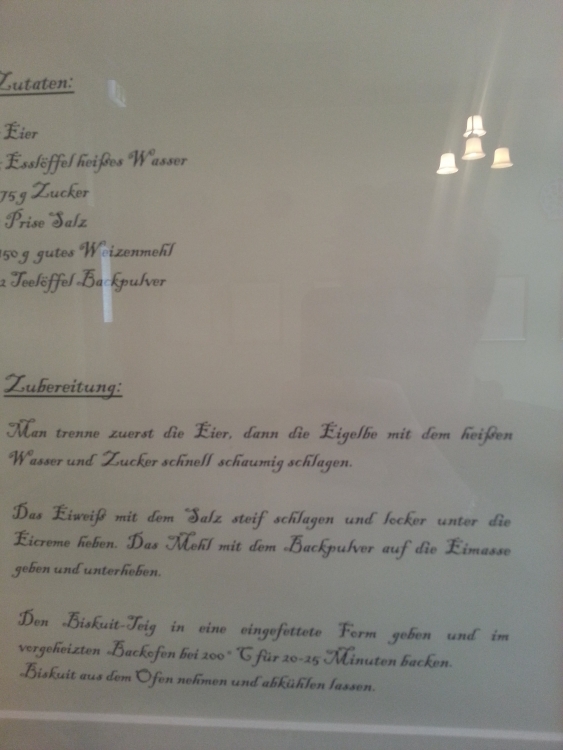 Zutaten:
Eier
Esslöffel heißes Wasser
75 g Zucker
Prise Salz
150 g gutes Weizenmehl
2 Teelöffel Backpulver
Zubereitung:
Man trenne zuerst die Eier, dann die Eigelbe mit dem heißen
Wasser und Zucker schnell schaumig schlagen.
Das Eiweiß mit dem Salz steif schlagen und locker unter die
Eicreme heben. Das Mehl mit dem Backpulver auf die Eimasse
geben und unterheben.
Den Biskuit-Teig in eine eingefettete Form geben und im
vorgeheizten Backofen bei 200° C für 20-25 Minuten backen.
Biskuit aus dem Ofen nehmen und abkühlen lassen.